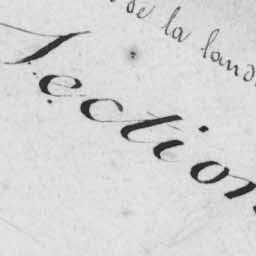 de la land
Section